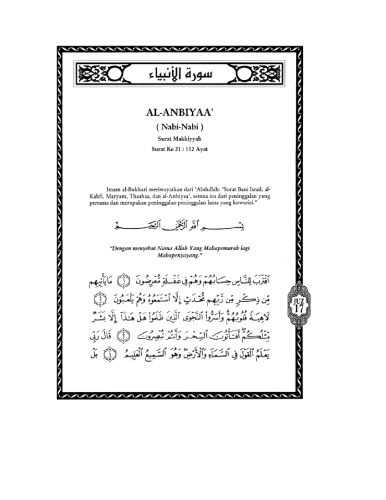 سورة الأنبياء
AL-ANBIYAA'
( Nabi-Nabi )
Surat Makkiyyah
Surat Ke 21 : 112 Ayat
Imam al-Bukhari meriwayatkan dari 'Abdullah: "Surat Bani Israil, al-
Kahfi, Maryam, Thaahaa, dan al-Anbiyaa', semua itu dari peninggalan yang
pertama dan merupakan peninggalan-peninggalan lama yang kuwarisi."
بِسْمِ اللَّهِ الرَّحْمَٰنِ الرَّحِيمِ
"Dengan menyebut Nama Allah Yang Mahapemurah lagi
Mahapenyayang."
اقْتَرَبَ لِلنَّاسِ حِسَابُهُمْ وَهُمْ فِي غَفْلَةٍ مُّعْرِضُونَ ١ مَا يَأْتِيهِم
مِّن ذِكْرٍ مِّن رَّبِّهِم مُّحْدَثٍ إِلَّا اسْتَمَعُوهُ وَهُمْ يَلْعَبُونَ ٢
لَاهِيَةً قُلُوبُهُمْ وَأَسَرُّوا النَّجْوَى الَّذِينَ ظَلَمُوا هَلْ هَٰذَا إِلَّا بَشَرٌ
مِّثْلُكُمْ أَفَتَأْتُونَ السِّحْرَ وَأَنتُمْ تُبْصِرُونَ ٣ قَالَ رَبِّي
يَعْلَمُ الْقَوْلَ فِي السَّمَاءِ وَالْأَرْضِ وَهُوَ السَّمِيعُ الْعَلِيمُ ٤ بَلْ
JUZ
17